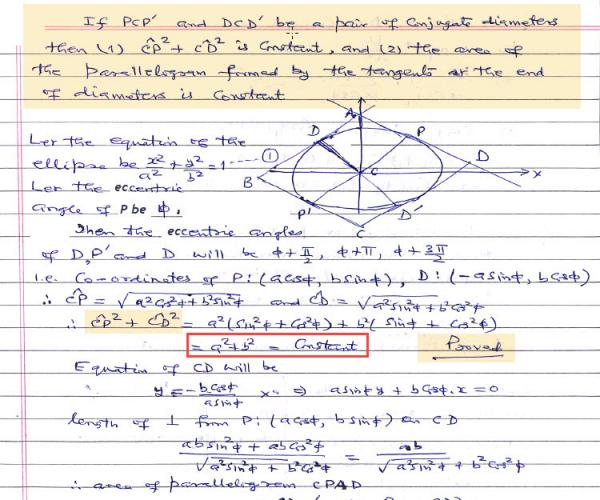 If PCP' and DCD' be a pair of Conjugate diameters
then (1) CP² + CD² is Constant, and (2) the area of
the parallelogram formed by the tangents at the end
of diameters is Constant
Let the equation of the
ellipse be x²/a² + y²/b² = 1 ---- ①
Let the eccentric
angle of P be ϕ.
Then the eccentric angles
of D, P' and D will be ϕ + π/2, ϕ + π, ϕ + 3π/2
i.e. Co-ordinates of P: (a cosϕ, b sinϕ), D: (-a sinϕ, b cosϕ)
∴ CP = √(a² cos²ϕ + b² sin²ϕ) and CD = √(a² sin²ϕ + b² cos²ϕ
∴ CP² + CD² = a² (sin²ϕ + cos²ϕ) + b² (sin²ϕ + cos²ϕ)
= a² + b² = Constant Proved
Equation of CD will be
y = - b cosϕ / a sinϕ x ⇒ a sinϕ y + b cosϕ . x = 0
length of ⊥ from P: (a cosϕ, b sinϕ) on CD
ab sin²ϕ + ab cos²ϕ / √(a² sin²ϕ + b² cos²ϕ = ab / √(a² sin²ϕ + b² cos²ϕ
∴ area of parallelogram CPAD
A
D
P
D
B
C
X
P'
D'
C